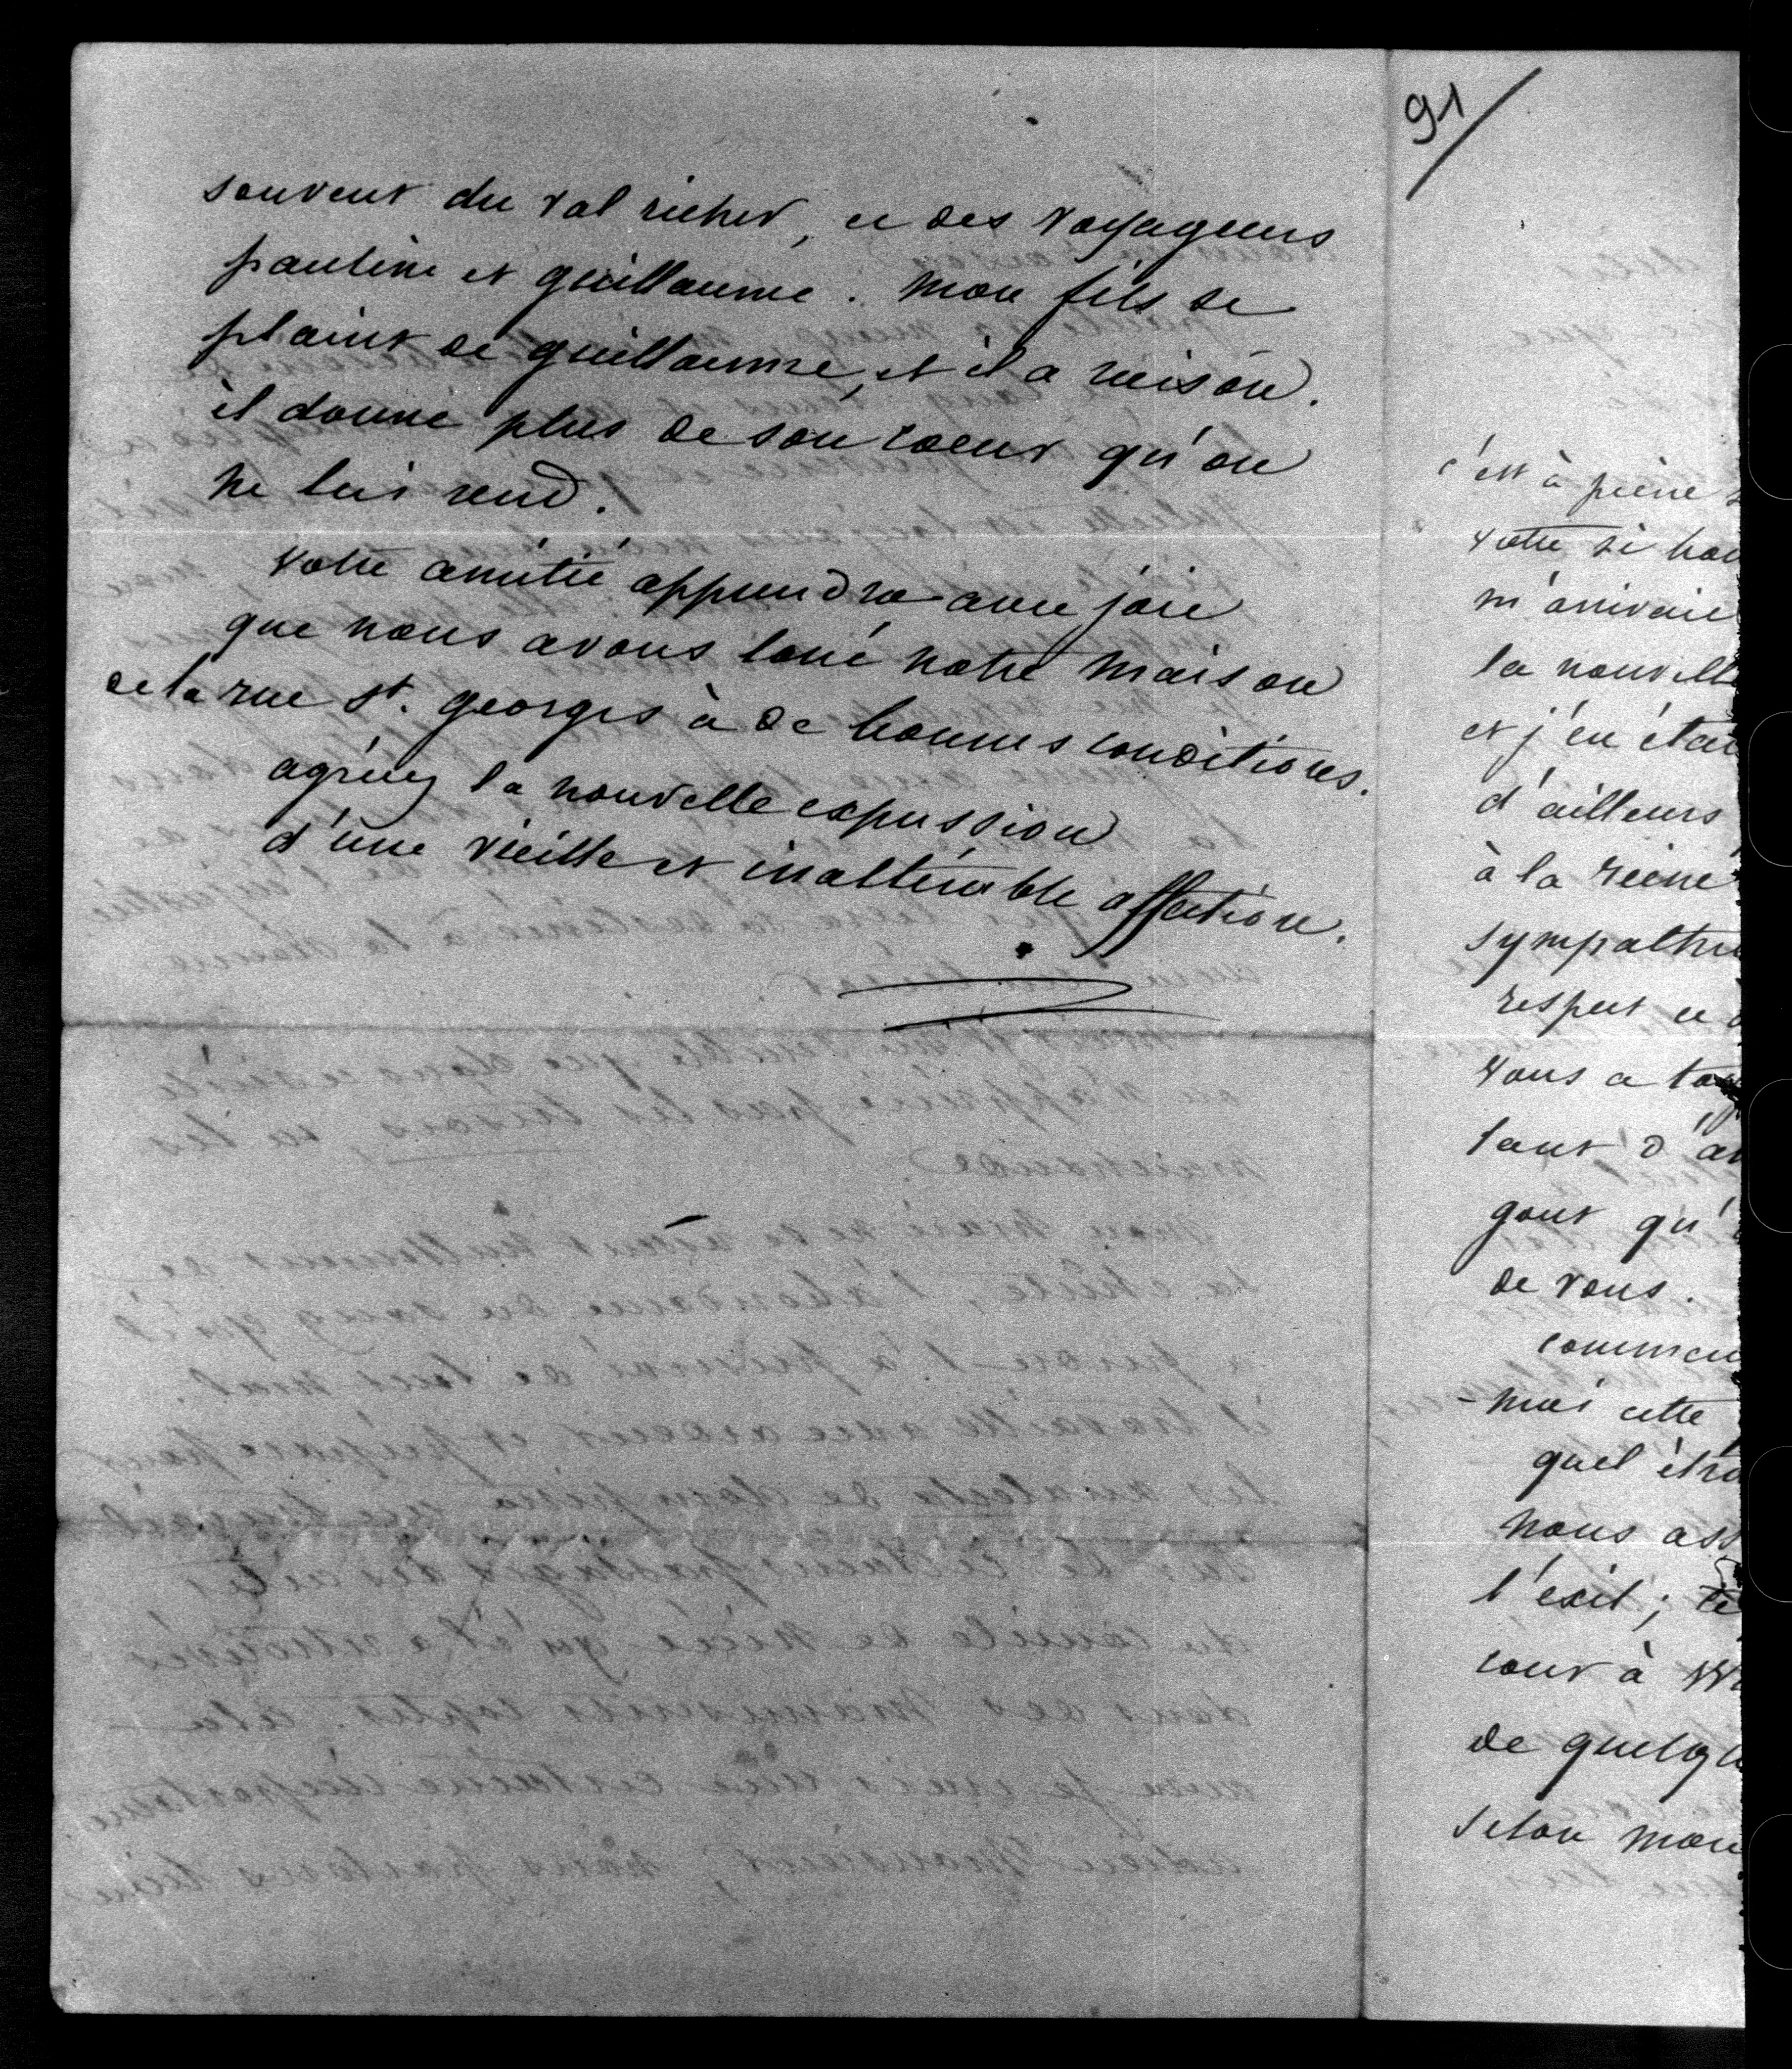 souvent du val richer, et des voyageurs
pauline et guillaume. Mon fils se
plaint de guillaume, et il a raison.
il donne plus de son coeur qu'on
ne lui rend.
votre amitié apprendra avec joie
que nous avons loué notre maison
de la rue St. georges à de bonnes conditions.
agréez la nouvelle expression
d'une vieille et inaltérable affection.
91
c'est à peine
votre si bon
m'arrivait
la nouvelle
et j'en étai
d'ailleurs
à la reine
sympathie
respect et
vous a
tant d'a
gout qu'
de vous.
commen
-moi cette
quel étra
nous ass
l'exil;
cour à
de quelq
selon mon